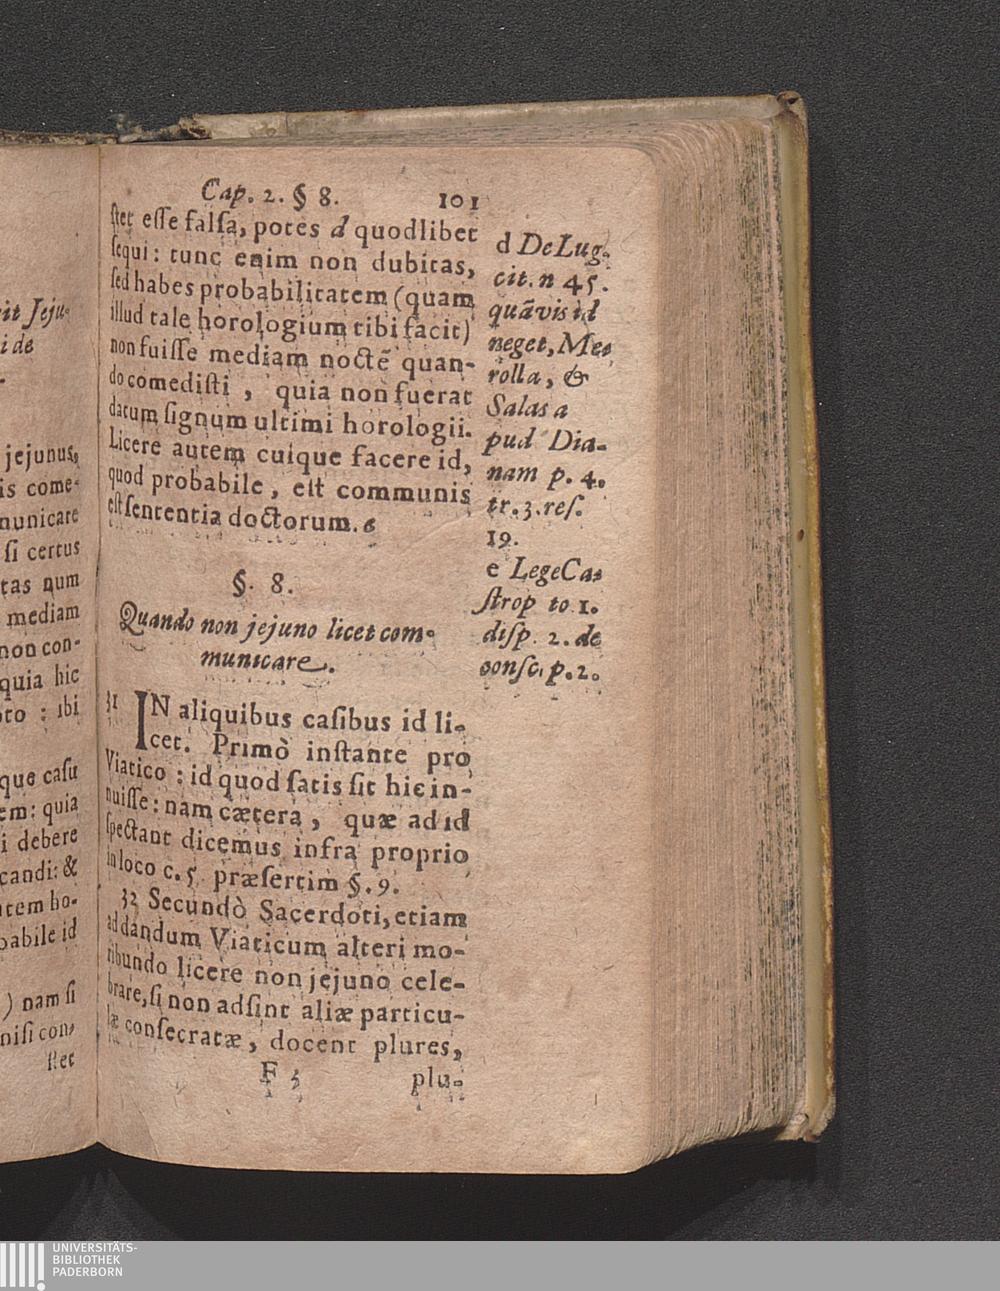 it Jeju-
i de
jejunus,
is come-
nunicare
si certus
tas num
mediam
non con-
quia hic
oto : ibi
que casu
em: quia
i debere
candi: &
tem ho-
babile id
) nam si
nisi con-
stet
Cap. 2. § 8. 101
stet esse falsa, potes d quodlibet
sequi: tunc enim non dubitas,
sed habes probabilitatem (quam
illud tale horologium tibi facit)
non fuisse mediam noctē quan-
do comedisti , quia non fuerat
datum signum ultimi horologii.
Licere autem cuique facere id,
quod probabile, est communis
est sententia doctorum. e
§. 8.
Quando non jejuno licet com-
municare.
31 IN aliquibus casibus id li-
cet. Primò instante pro
Viatico : id quod satis sit hic in-
nuisse: nam cætera, quæ ad id
spectant dicemus infra proprio
in loco c. 5. præsertim §. 9.
32 Secundò Sacerdoti, etiam
ad dandum Viaticum alteri mo-
ribundo licere non jejuno cele-
brare, si non adsint aliæ particu-
læ consecratæ, docent plures,
F 5 plu-
d De Lug.
cit. n 45.
quāvis id
neget, Me-
rolla, &
Salas a
pud Dia-
nam p. 4.
tr. 3. res.
19.
e Lege Ca-
strop to 1.
disp. 2. de
consc. p. 2.
UNIVERSITÄTS-
BIBLIOTHEK
PADERBORN